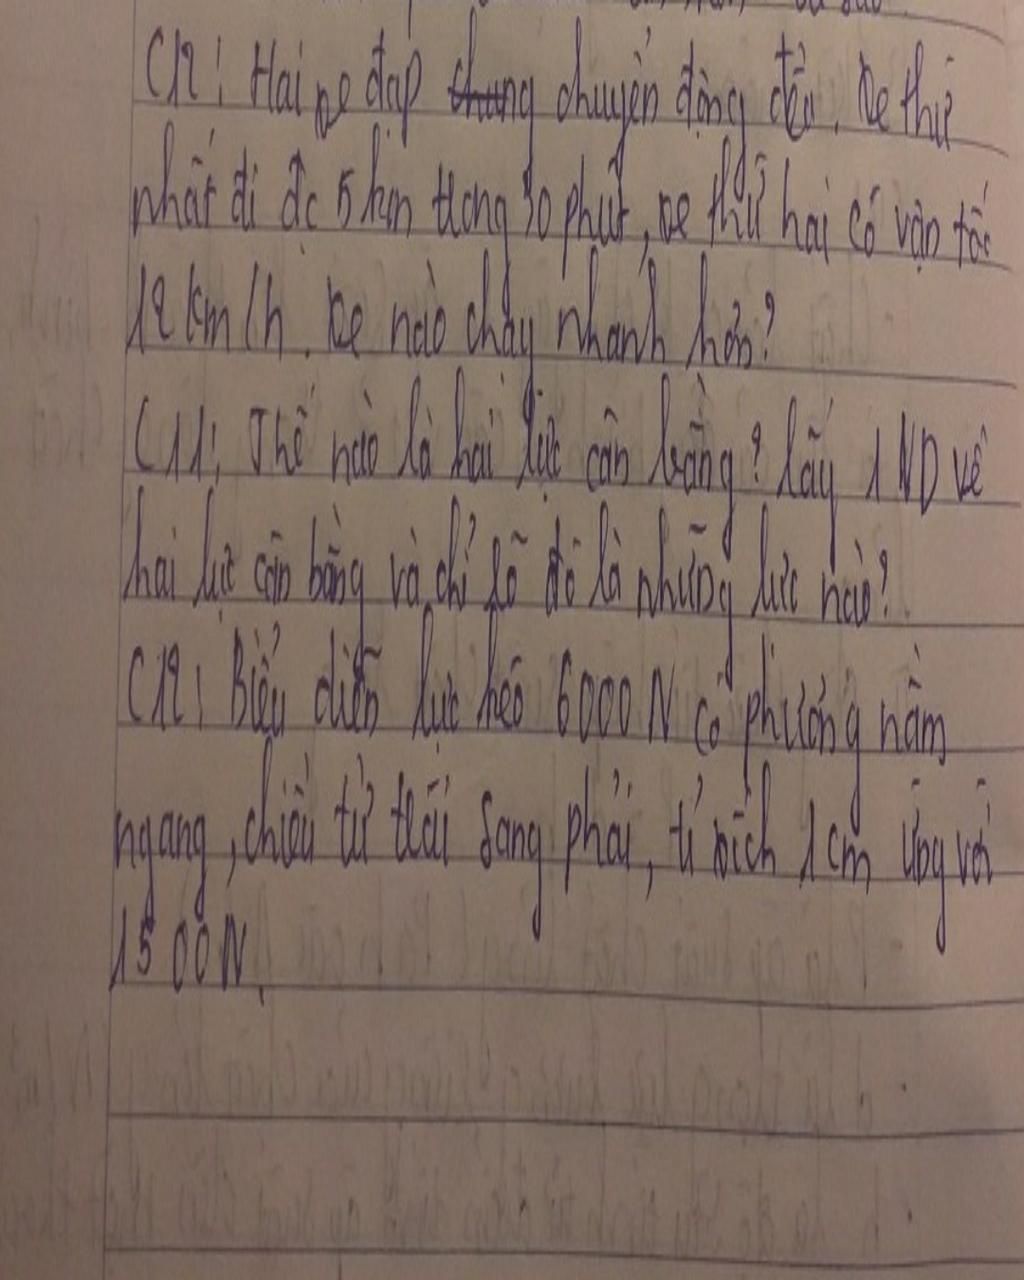 C12: Hai xe đạp chung chuyển động đều. Xe thứ
nhất đi đc 5 km trong 30 phút, xe thứ hai có vận tốc
12 km/h. Xe nào chạy nhanh hơn?
C11: Thế nào là hai lực cân bằng? lấy 1 ND về
hai lực cân bằng và chỉ rõ đó là những lực nào?
C12: Biểu diễn lực kéo 6000 N có phương nằm
ngang, chiều từ trái sang phải, tỉ xích 1cm ứng với
1500 N.